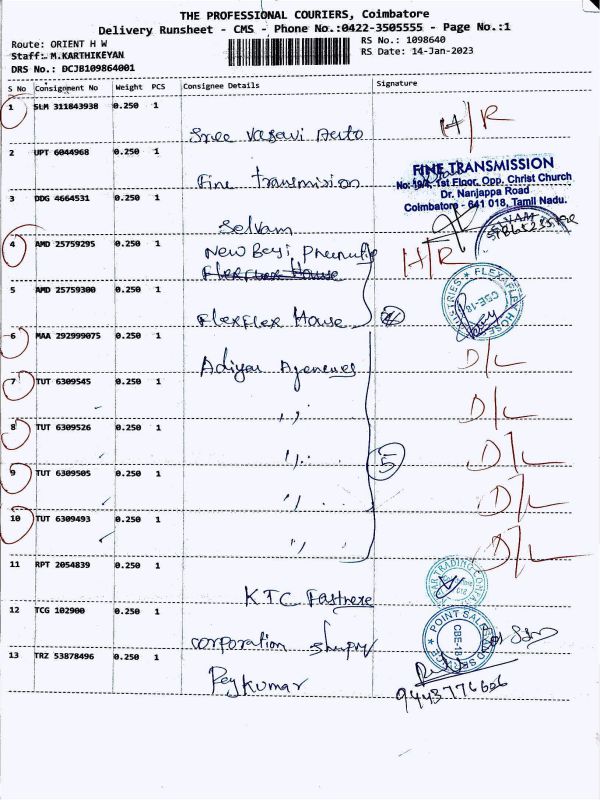 THE PROFESSIONAL COURIERS, Coimbatore
Delivery Runsheet - CMS - Phone No.:0422-3505555 - Page No.:1
Route: ORIENT H W
RS No.: 1098640
Staff: M.KARTHIKEYAN
RS Date: 14-Jan-2023
DRS No.: DCJB109864001
S No Consignment No Weight PCS Consignee Details Signature
1 SLM 311843938 0.250 1
Sree Vasavi Auto H/R
2 UPT 6044968 0.250 1
Fine transmision
FINE TRANSMISSION
No: 1st Floor, Opp. Christ Church
Dr. Nanjappa Road
Coimbatore - 641 018, Tamil Nadu.
3 DDG 4664531 0.250 1
Selvam
4 AMD 25759295 0.250 1
New Beyi H/R
FlexFlex House
5 AMD 25759300 0.250 1
FlexFlex House
6 MAA 292999075 0.250 1
Adiyar Agencies D/L
7 TUT 6309545 0.250 1
,, D/L
8 TUT 6309526 0.250 1
,, 5 D/L
9 TUT 6309505 0.250 1
,, D/L
10 TUT 6309493 0.250 1
,, D/L
11 RPT 2054839 0.250 1
TRADING COMPANY
KTC
12 TCG 102900 0.250 1
POINT SALES AND SERVICE
CBE-18
corporation
13 TRZ 53878496 0.250 1
9443776606